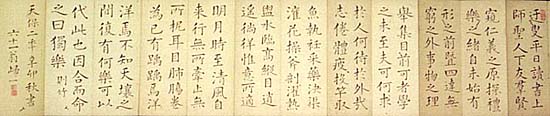 迂叟平日讀書上
師聖人下友羣賢
窺仁義之原探禮
樂之緒自未始有
形之前暨四達無
窮之外事物之理
舉集目前可者學
之未至夫可何求
於人何待於外哉
志倦體疲投竿取
魚執衽采藥決渠
灌花操斧剖濯熱
盥水臨高縱目逍
遙徜徉惟意所適
明月時至清風自
來行無所牽止無
所柅耳目肺腸卷
為己有踽踽焉洋
洋焉不知天壤之
間復有何樂可以
代此也因合而命
之曰獨樂 則竹
天保二季辛卯秋書
六十一翁